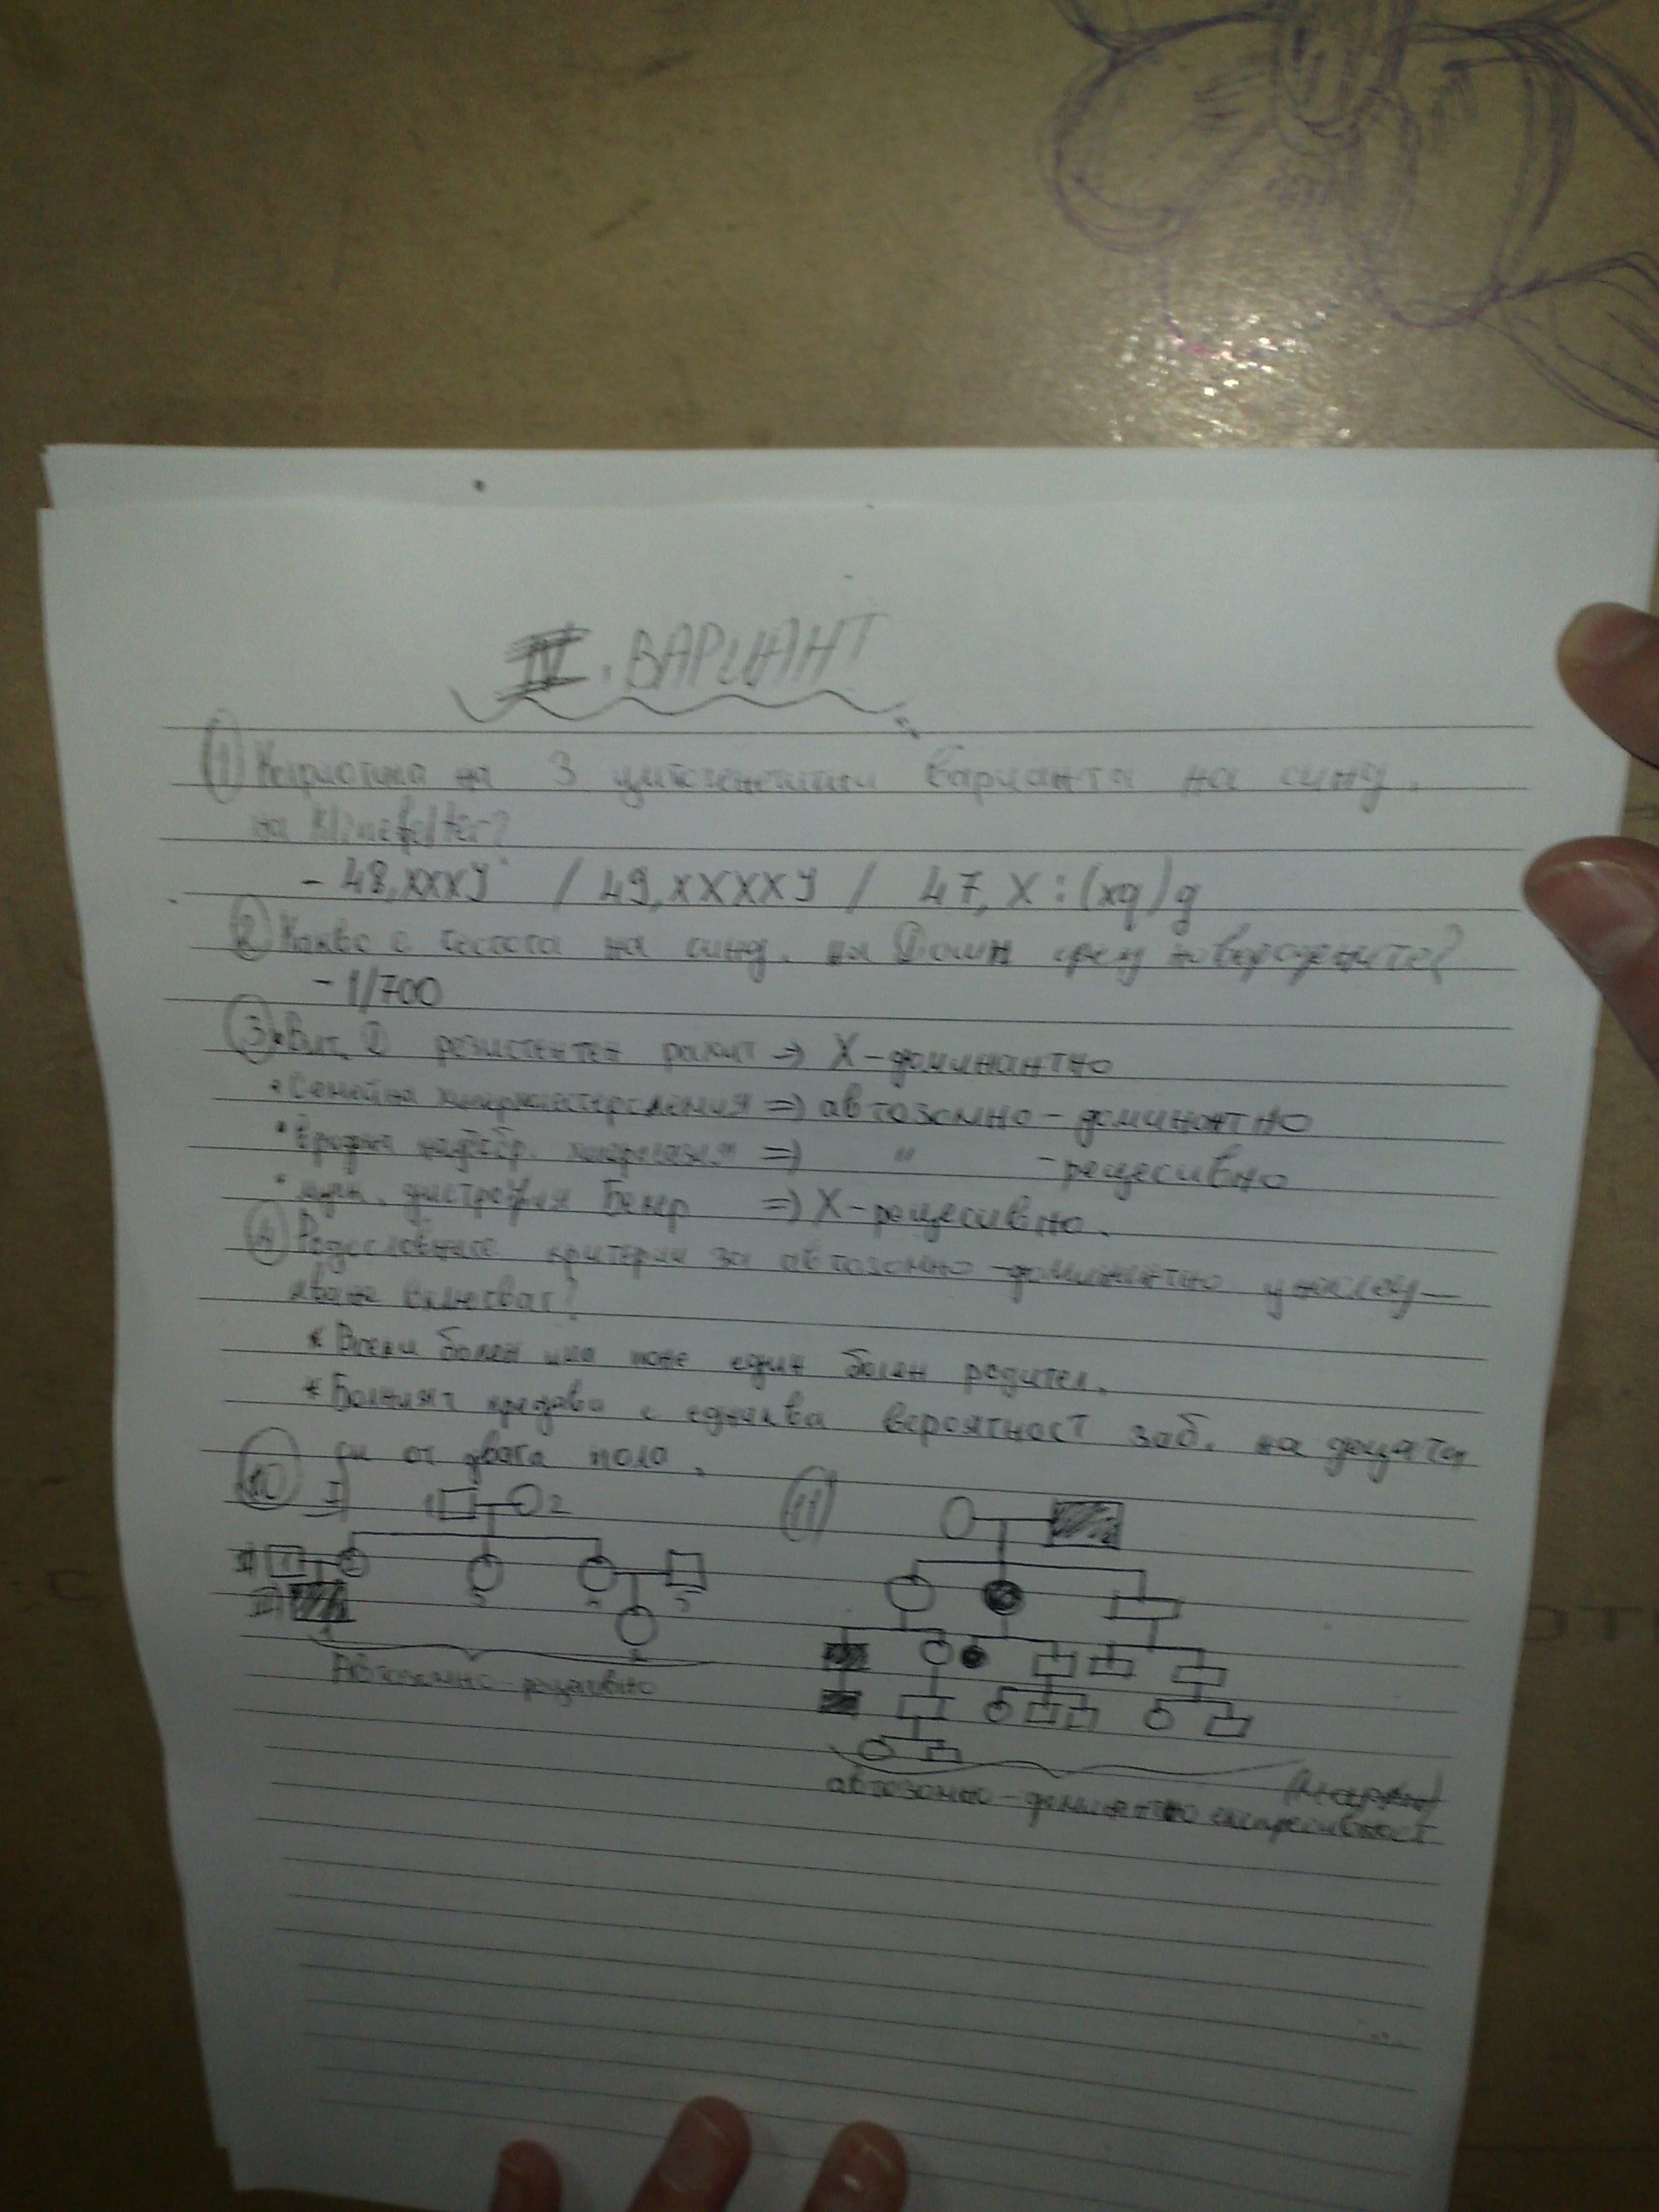 IV. ВАРИАНТ
1 Кариотипа на 3 цитогенетични варианта на синд.
на Klinefelter?
- 48,XXXY / 49,XXXXY / 47, X i(xq)y
2 Какво е честота на синд. на Down сред новородените?
- 1/700
3 • Вит. D резистентен рахит => X-доминантно
• Семейна хиперхолестеролемия => автозомно-доминантно
• Вродена надбъбр. хиперплазия => " -рецесивно
• мускулна дистрофия Бекер => X-рецесивно.
4 Родословните критерии за автозомно-доминантно унасле-
дяване включват?
* Всеки болен има поне един болен родител.
* Болният предава с еднаква вероятност заб. на децата
си от двата пола.
10 I 1 2 11
II 1 2 3 4 5
III 1 2
Автозомно-рецесивно
автозомно-доминантно експресивност